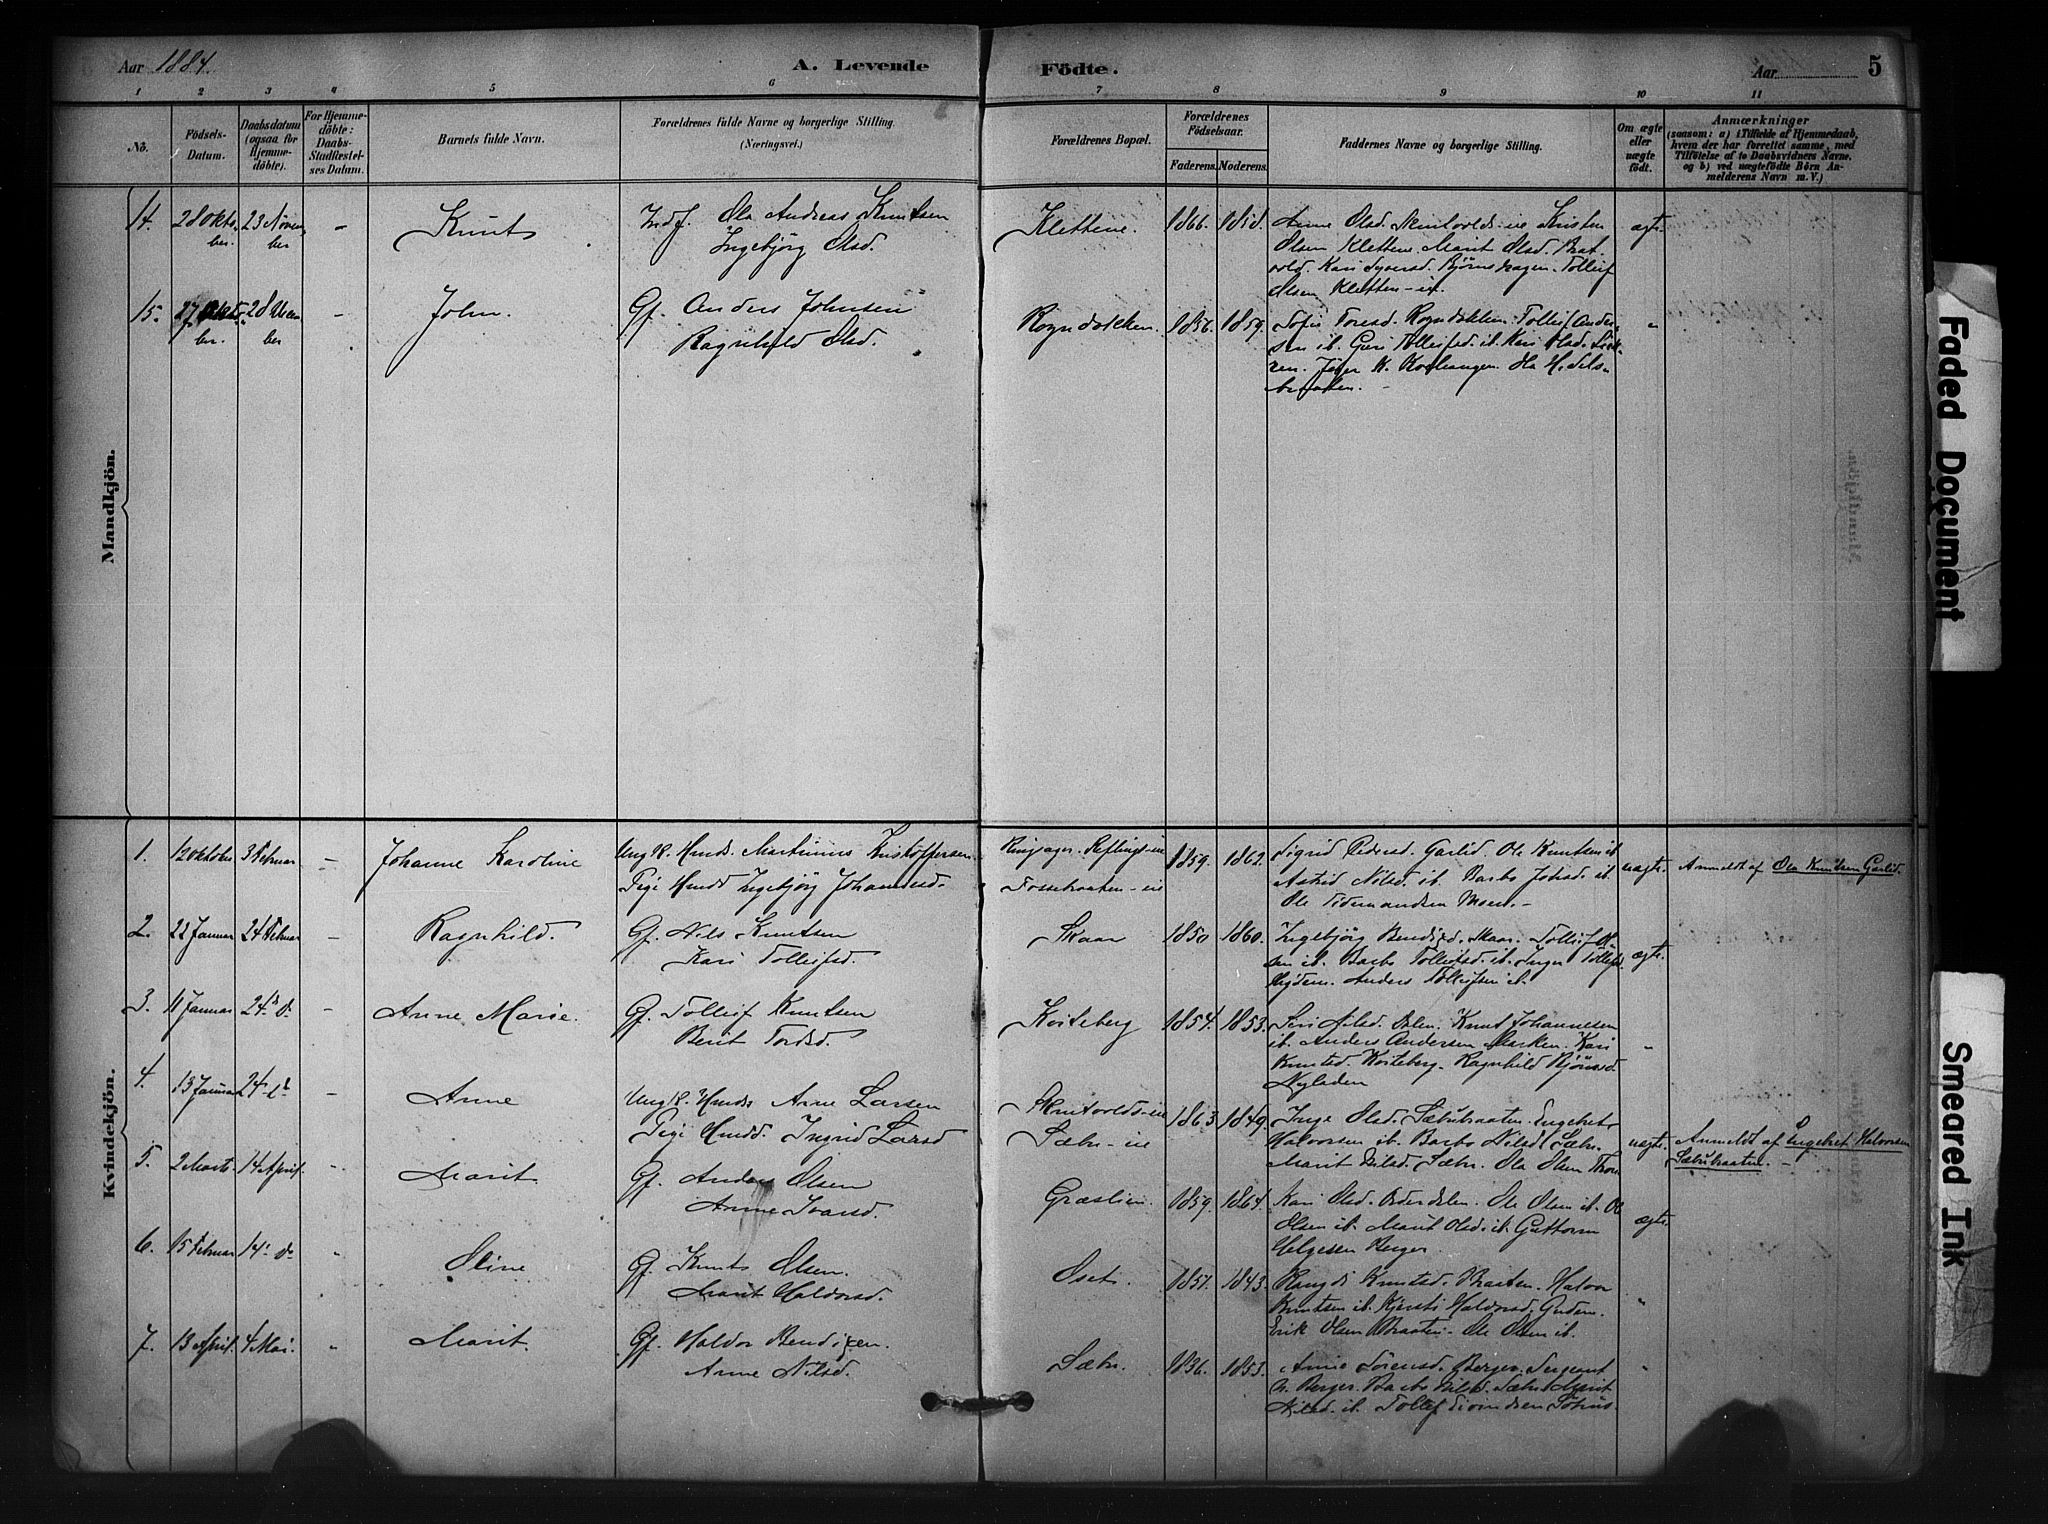 Aar 1884.
A. Levende Födte.
Aar
5
1 2 3 4 5 6 7 8 9 10 11
No.
Födsels-Datum.
Daabsdatum (ogsaa for Hjemmedöbte).
For Hjemmedöbte: Daabs-Stadfæstelses Datum.
Barnets fulde Navn.
Forældrenes fulde Navne og borgerlige Stilling.
(Næringsvei.)
Forældrenes Bopæl.
Forældrenes Födselsaar.
Faderens. Moderens.
Faddernes Navne og borgerlige Stilling.
Om ægte eller uægte födt.
Anmærkninger
(saasom: a) i Tilfælde af Hjemmedaab,
hvem der har forrettet samme, med
Tilföielse af to Daabsvidners Navne,
og b) ved uægtefödte Börn An-
melderens Navn m. V.)
Mandkjön.
14. 28 Oktober. 23 November - Knut Indf. Ola Andreas Knutsen
Ingebjörg Olsd. Klettene. 1866. 1858. Anne Olsd. Skutvolds-eie Kristen ægte
Olsen Klettene. Marit Olsd. Brat-
vold. Kari Syversd. Björnshagen. Tollef
Olsen Kletten-eie.
15. 27 Oktober. 28 December - John. Gf. Anders Johnsen
Ragnhild Olsd. Rogndokken. 1856. 1859. Sofie Toresd. Rogndokken. Tollef Ander- "
sen ib. Guri Tollefsd. ib. Kari Olsd.
Kvindekjön.
1. 12 Oktober 3 Februar - Johanne Karoline Ungk. Hmds. Martinus Kristoffersen
Pige Hmdd Ingebjörg Johannesd. Ringsager. Reflings-eie
Fossebraaten-eie 1859. 1862. Sigrid Pedersd. Garlid. Ole Knutsen ib. uægte. Anmeldt af Ola Knutsen Garlid.
Astrid Nilsd. ib. Barbo Johnsd. ib.
Ole Tidemandsen Moen.-
2. 22 Januar 24 Februar - Ragnhild. Gf. Nils Knutsen
Kari Tollefsd. Skaar 1850 1860. Ingebjörg Bendigsd. Skaar. Tollef Ol-
sen ib. Barbo Tollefsd. ib. Inger Tollefsd. ægte.
Anders Tollefsen ib.
3. 11 Januar 24 d. - Anne Marie. Gf. Tollef Knutsen
Berit Tordsd. Koiteberg 1854. 1853. Siri Nilsd. Dalen. Knut Johannesen "
ib. Anders Andersen Marken. Kari
Knutsd. Koiteberg. Ragnhild Björnsd.
Nyladen
4. 13 Januar 24 d. - Anne Ungk. Hmds. Arne Larsen
Pige Hmdd. Ingrid Larsd Skutvolds-eie
Sæbu-eie 1863 1849. Inge Olsd. Sæbubraaten. Engebret
Halvorsen ib. Barbo Nilsd. Sæbu. uægte. Anmeldt af Engebret Halvorsen
Marit Nilsd. Sæbu. Ola Olsen Thon Sæbubraaten.-
5. 2 Marts 14 April - Marit Gf. Anders Olsen
Anne Ivarsd. Græslien. 1859. 1864. Kari Olsd. Osterdalen. Ole Olsen ib. Ole ægte.
Olsen ib. Marit Olsd. ib. Guttorm
Helgesen Berger.
6. 15 Februar 14 d. " Oline Gf. Knut Olsen.
Marit Haldorsd. Oset. 1851. 1843. Rangdi Knutsd. Braaten. Halvor
Knutsen ib. Kjersti Haldorsd. "
Erik Olsen Braaten. Ole Olsen ib.
7. 13 April. 4 Mai. " Marit. Gf. Haldor Bendigsen.
Anne Nilsd. Sæbu. 1836. 1853. Anne Sörensd. Berger. Sergeant "
N. Berger. Barbo Nilsd. Sæbu. Marit
Nilsd. ib. Tollef Eivindsen
Faded Document
Smeared Ink